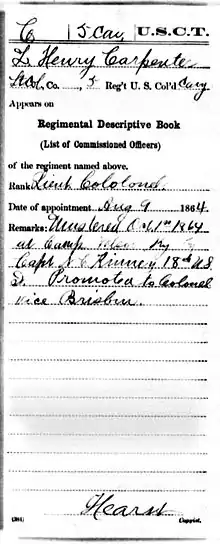 C | 5 Cav | U.S.C.T.
L. Henry Carpenter
, Co. , 5 Reg't U. S. Col'd Cavy
Appears on
Regimental Descriptive Book
(List of Commissioned Officers)
of the regiment named above.
Rank Lieut Colonel
Date of appointment Aug 9 1864
Remarks: Mustered Oct 1st 1864
at Camp Ky by
Capt Kinney 18th U.S.
I. Promoted to Colonel
vice Brisbin.
Hearst
(381) Copyist.